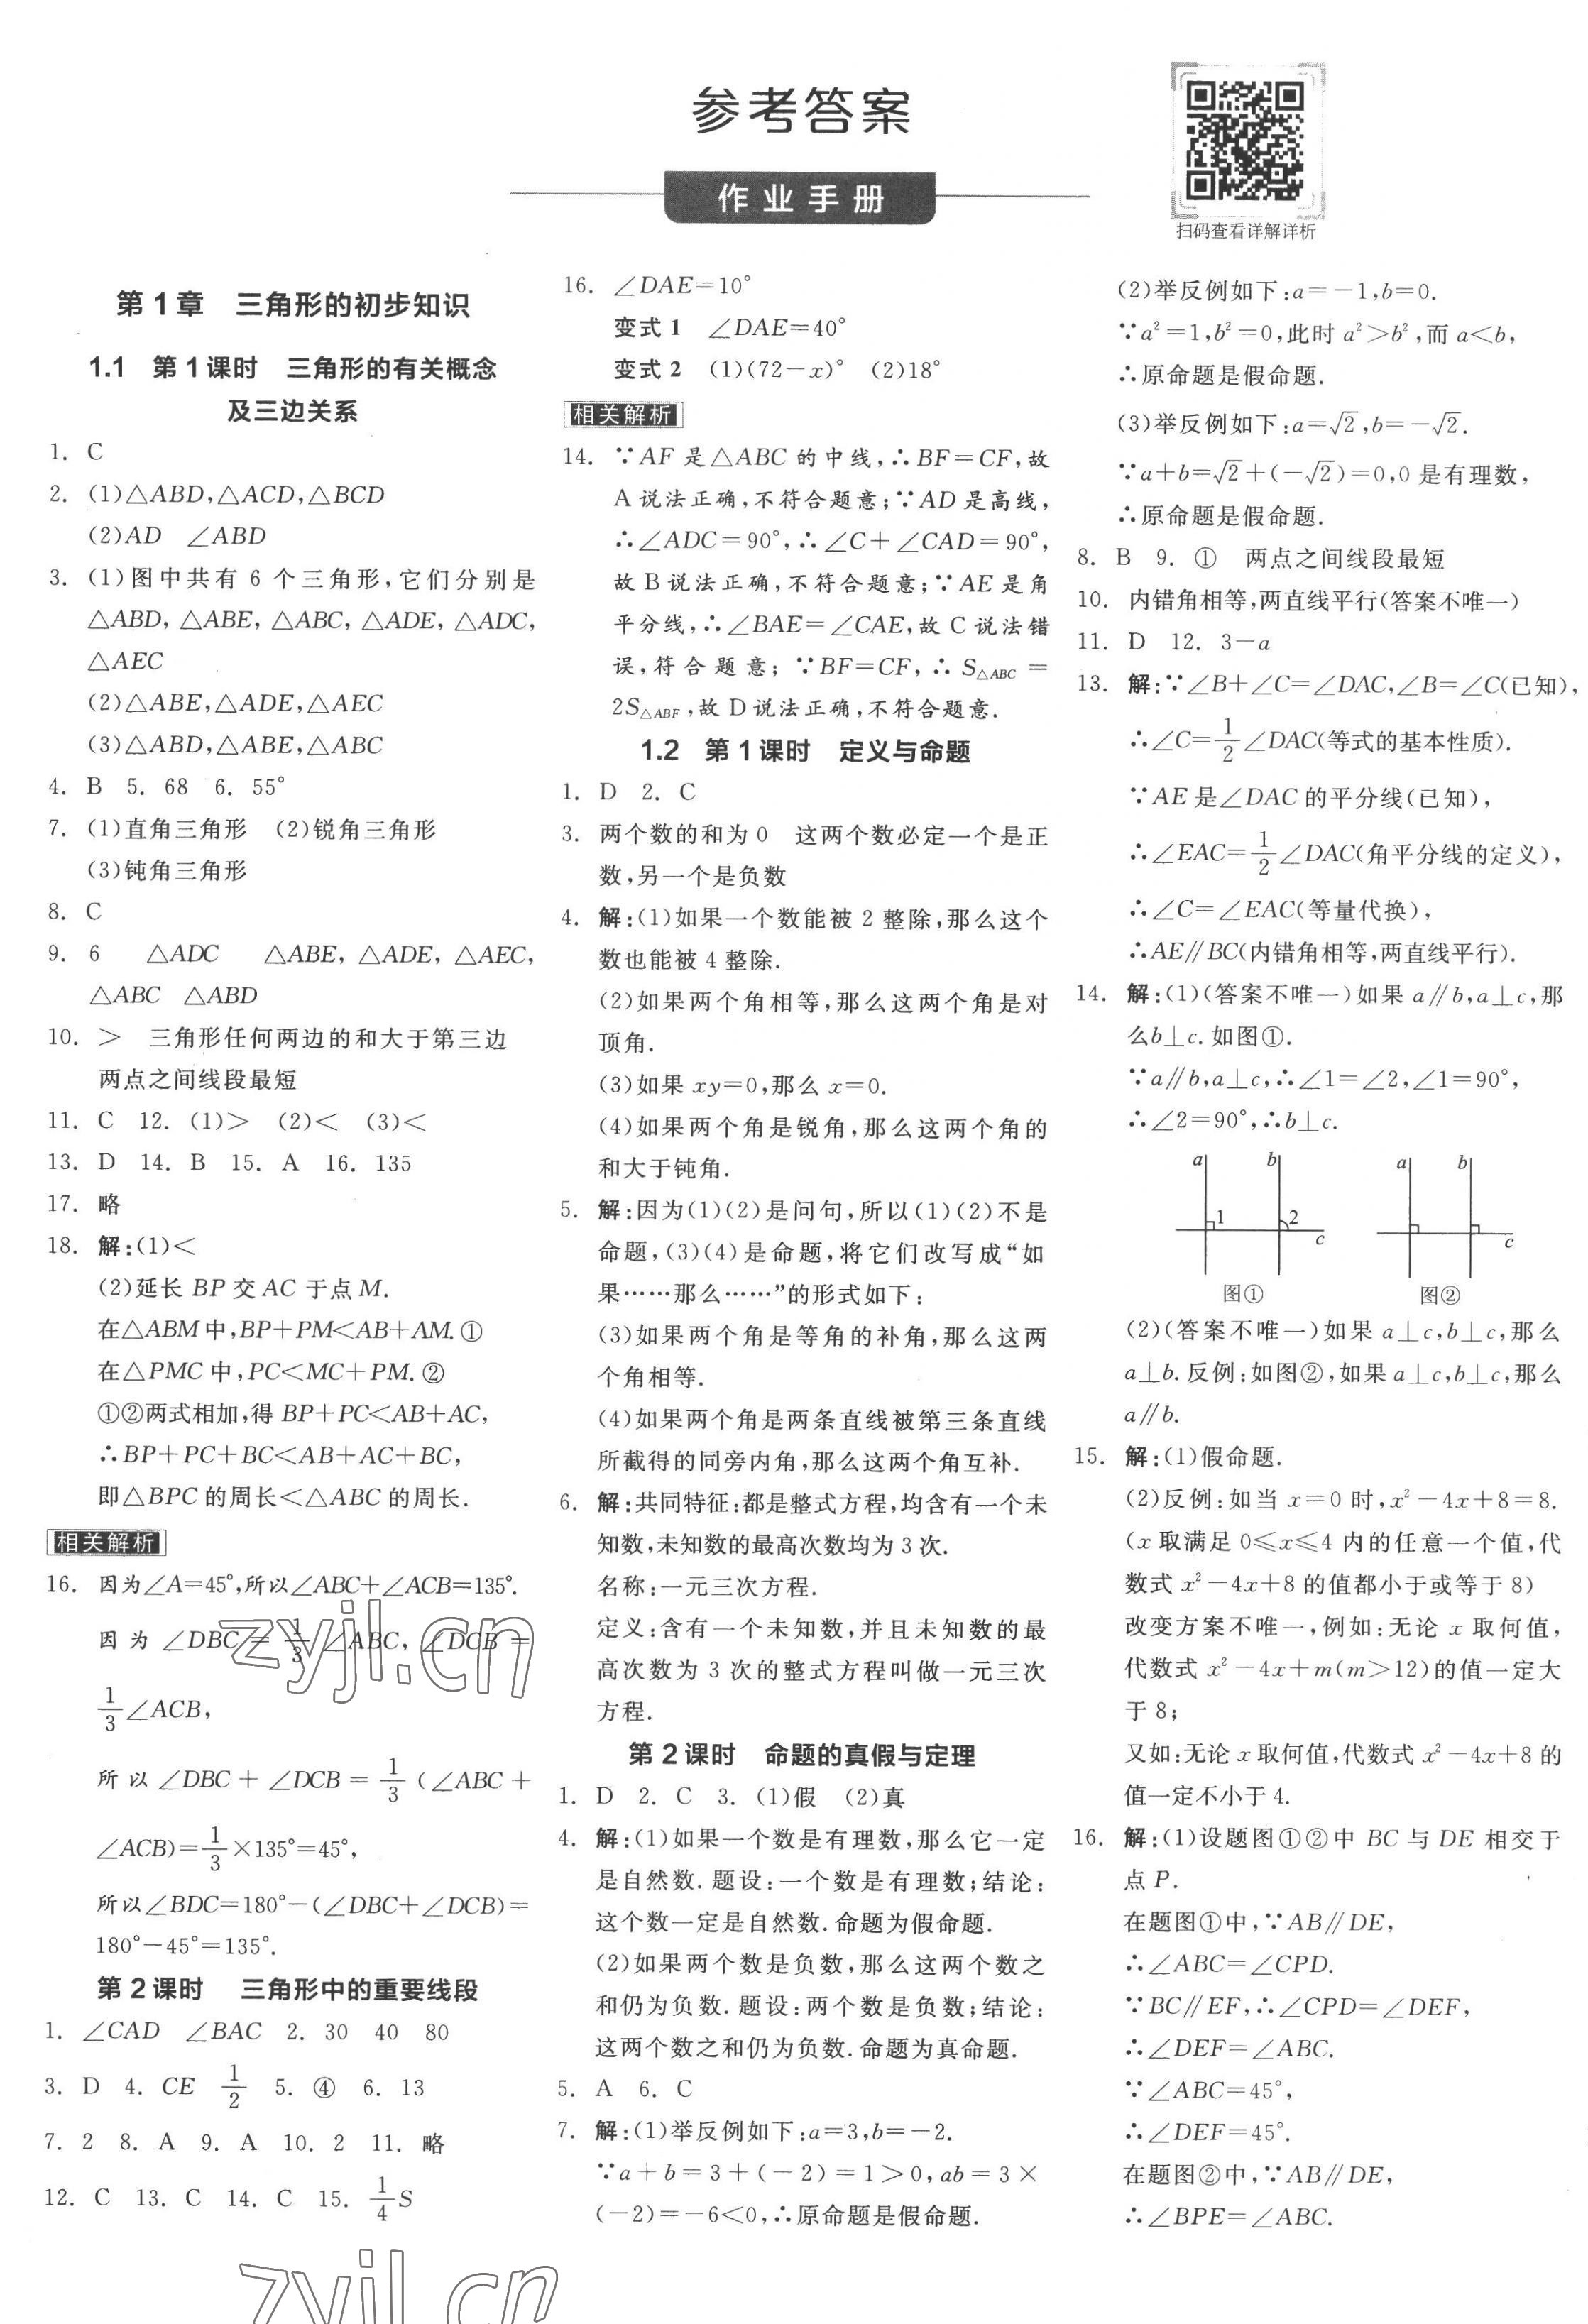 参考答案
作业手册
扫码查看详解详析
第1章 三角形的初步知识
1.1 第1课时 三角形的有关概念
及三边关系
1. C
2. (1)△ABD,△ACD,△BCD
(2)AD ∠ABD
3. (1)图中共有6个三角形,它们分别是
△ABD,△ABE,△ABC,△ADE,△ADC,
△AEC
(2)△ABE,△ADE,△AEC
(3)△ABD,△ABE,△ABC
4. B 5. 68 6. 55°
7. (1)直角三角形 (2)锐角三角形
(3)钝角三角形
8. C
9. 6 △ADC △ABE,△ADE,△AEC,
△ABC △ABD
10. > 三角形任何两边的和大于第三边
两点之间线段最短
11. C 12. (1)> (2)< (3)<
13. D 14. B 15. A 16. 135
17. 略
18. 解:(1)<
(2)延长BP交AC于点M.
在△ABM中,BP+PM<AB+AM.①
在△PMC中,PC<MC+PM.②
①②两式相加,得BP+PC<AB+AC,
∴BP+PC+BC<AB+AC+BC,
即△BPC的周长<△ABC的周长.
相关解析
16. 因为∠A=45°,所以∠ABC+∠ACB=135°.
因为∠DBC=1/3∠ABC,∠DCB=
1/3∠ACB,
所以∠DBC+∠DCB=1/3(∠ABC+
∠ACB)=1/3×135°=45°,
所以∠BDC=180°-(∠DBC+∠DCB)=
180°-45°=135°.
第2课时 三角形中的重要线段
1. ∠CAD ∠BAC 2. 30 40 80
3. D 4. CE 1/2 5. ④ 6. 13
7. 2 8. A 9. A 10. 2 11. 略
12. C 13. C 14. C 15. 1/4S
16. ∠DAE=10°
变式1 ∠DAE=40°
变式2 (1)(72-x)° (2)18°
相关解析
14. ∵AF是△ABC的中线,∴BF=CF,故
A说法正确,不符合题意;∵AD是高线,
∴∠ADC=90°,∴∠C+∠CAD=90°,
故B说法正确,不符合题意;∵AE是角
平分线,∴∠BAE=∠CAE,故C说法错
误,符合题意;∵BF=CF,∴S△ABC=
2S△ABF,故D说法正确,不符合题意.
1.2 第1课时 定义与命题
1. D 2. C
3. 两个数的和为0 这两个数必定一个是正
数,另一个是负数
4. 解:(1)如果一个数能被2整除,那么这个
数也能被4整除.
(2)如果两个角相等,那么这两个角是对
顶角.
(3)如果xy=0,那么x=0.
(4)如果两个角是锐角,那么这两个角的
和大于钝角.
5. 解:因为(1)(2)是问句,所以(1)(2)不是
命题,(3)(4)是命题,将它们改写成“如
果……那么……”的形式如下:
(3)如果两个角是等角的补角,那么这两
个角相等.
(4)如果两个角是两条直线被第三条直线
所截得的同旁内角,那么这两个角互补.
6. 解:共同特征:都是整式方程,均含有一个未
知数,未知数的最高次数均为3次.
名称:一元三次方程.
定义:含有一个未知数,并且未知数的最
高次数为3次的整式方程叫做一元三次
方程.
第2课时 命题的真假与定理
1. D 2. C 3. (1)假 (2)真
4. 解:(1)如果一个数是有理数,那么它一定
是自然数.题设:一个数是有理数;结论:
这个数一定是自然数.命题为假命题.
(2)如果两个数是负数,那么这两个数之
和仍为负数.题设:两个数是负数;结论:
这两个数之和仍为负数.命题为真命题.
5. A 6. C
7. 解:(1)举反例如下:a=3,b=-2.
∵a+b=3+(-2)=1>0,ab=3×
(-2)=-6<0,∴原命题是假命题.
(2)举反例如下:a=-1,b=0.
∵a²=1,b²=0,此时a²>b²,而a<b,
∴原命题是假命题.
(3)举反例如下:a=√2,b=-√2.
∵a+b=√2+(-√2)=0,0是有理数,
∴原命题是假命题.
8. B 9. ① 两点之间线段最短
10. 内错角相等,两直线平行(答案不唯一)
11. D 12. 3-a
13. 解:∵∠B+∠C=∠DAC,∠B=∠C(已知),
∴∠C=1/2∠DAC(等式的基本性质).
∵AE是∠DAC的平分线(已知),
∴∠EAC=1/2∠DAC(角平分线的定义),
∴∠C=∠EAC(等量代换),
∴AE∥BC(内错角相等,两直线平行).
14. 解:(1)(答案不唯一)如果a∥b,a⊥c,那
么b⊥c.如图①.
∵a∥b,a⊥c,∴∠1=∠2,∠1=90°,
∴∠2=90°,∴b⊥c.
a b a b
1 2
c c
图① 图②
(2)(答案不唯一)如果a⊥c,b⊥c,那么
a⊥b.反例:如图②,如果a⊥c,b⊥c,那么
a∥b.
15. 解:(1)假命题.
(2)反例:如当x=0时,x²-4x+8=8.
(x取满足0≤x≤4内的任意一个值,代
数式x²-4x+8的值都小于或等于8)
改变方案不唯一,例如:无论x取何值,
代数式x²-4x+m(m>12)的值一定大
于8;
又如:无论x取何值,代数式x²-4x+8的
值一定不小于4.
16. 解:(1)设题图①②中BC与DE相交于
点P.
在题图①中,∵AB∥DE,
∴∠ABC=∠CPD.
∵BC∥EF,∴∠CPD=∠DEF,
∴∠DEF=∠ABC.
∵∠ABC=45°,
∴∠DEF=45°.
在题图②中,∵AB∥DE,
∴∠BPE=∠ABC.
zyjl.cn
zyjl.cn